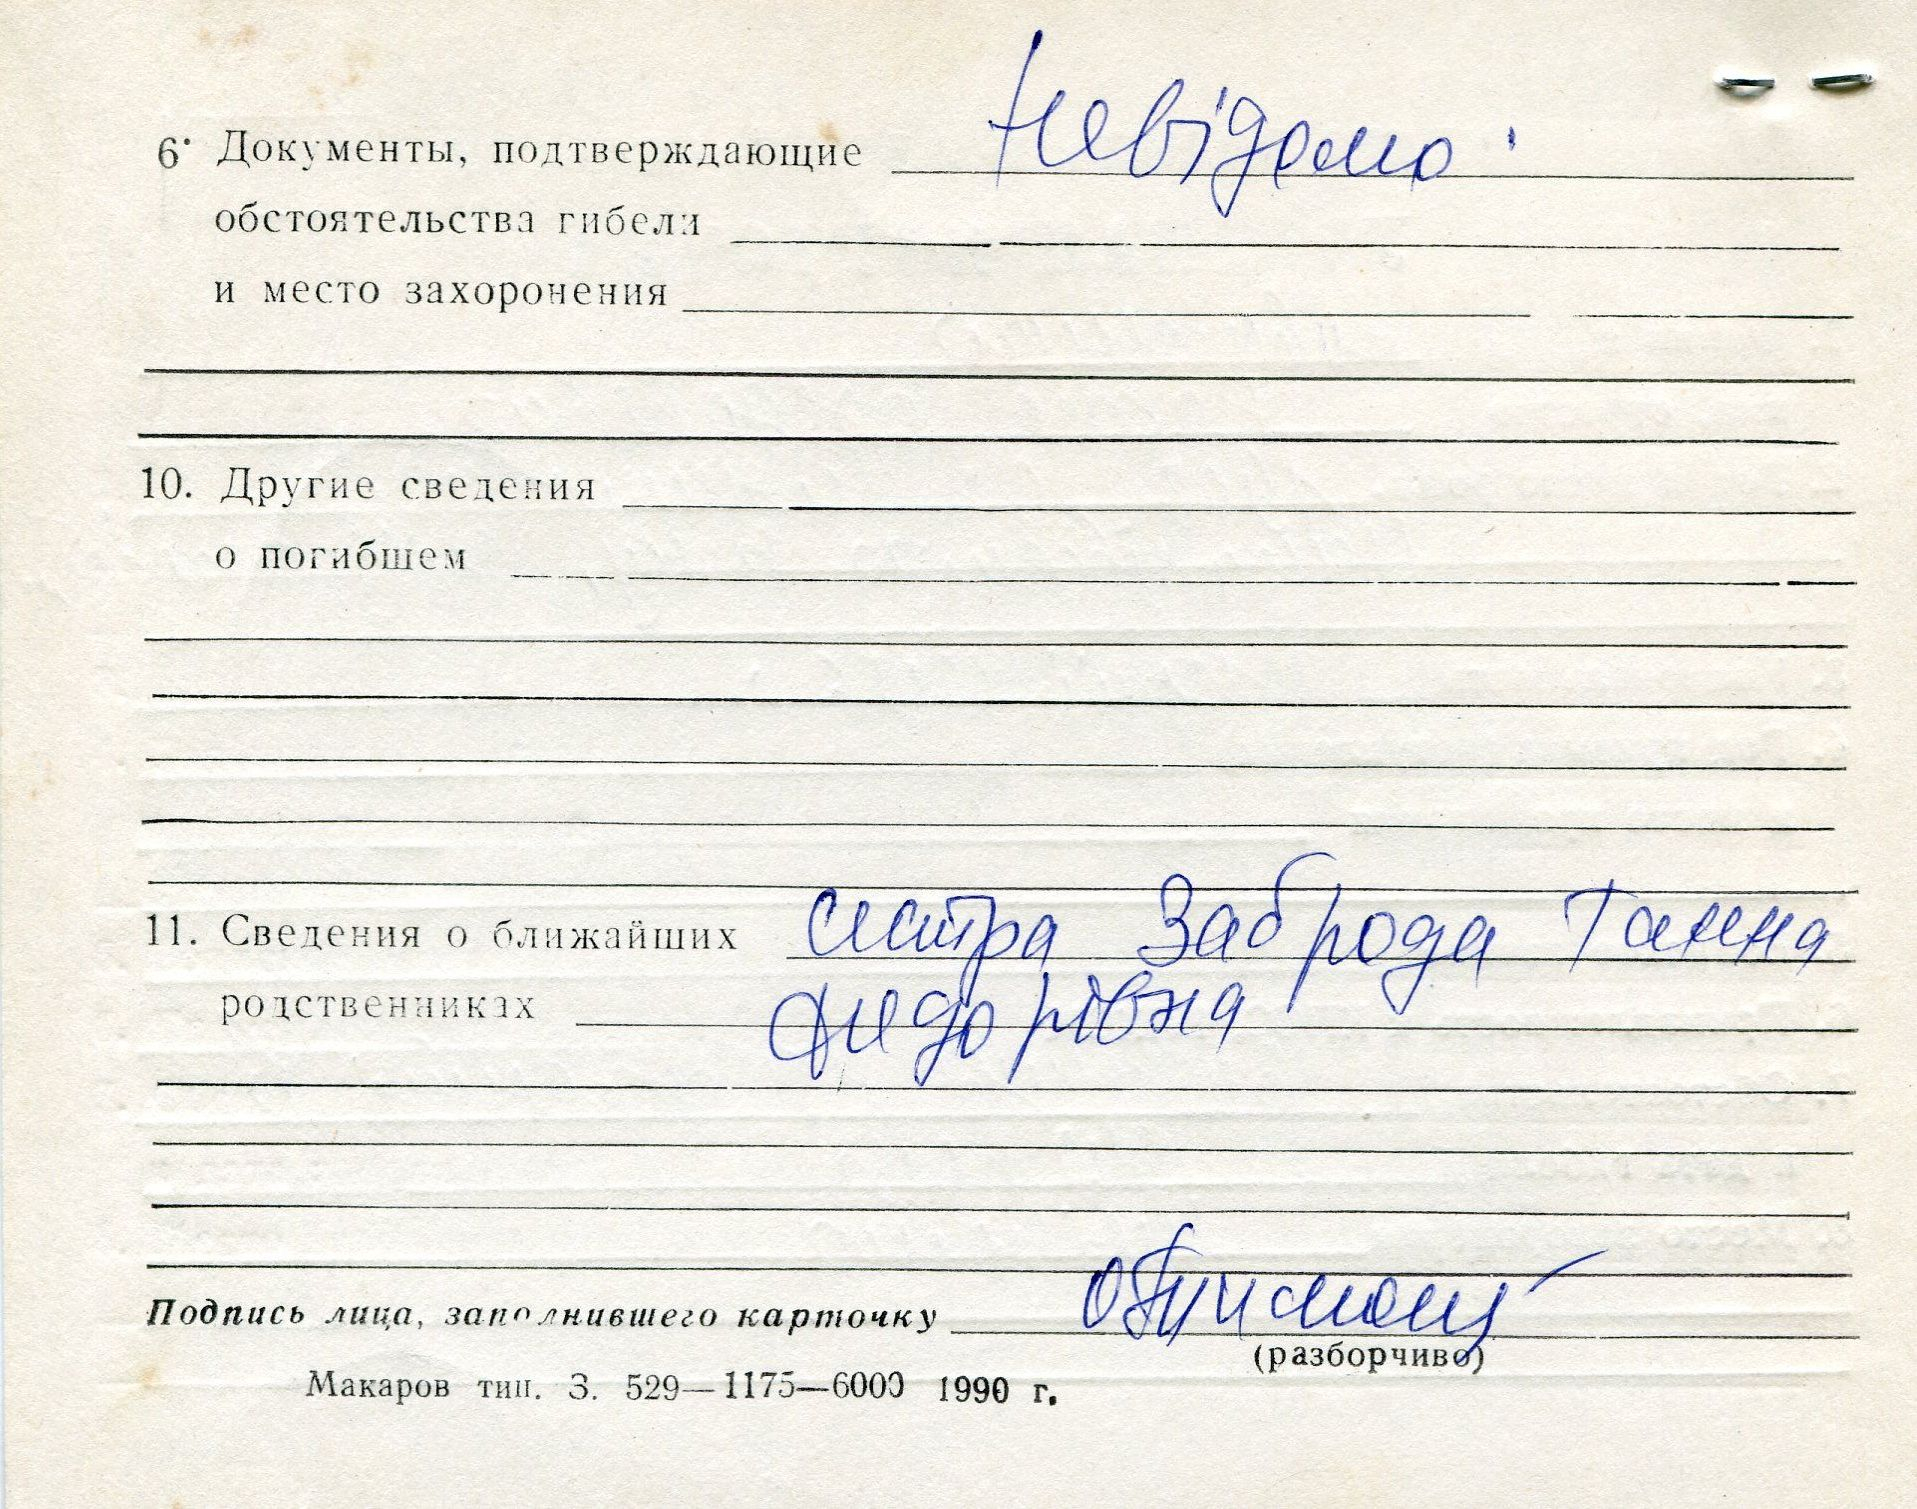 6. Документы, подтверждающие Невідомо.
обстоятельства гибели
и место захоронения
10. Другие сведения
о погибшем
11. Сведения о ближайших сестра Заброда Ганна
родственниках Федорівна
Подпись лица, заполнившего карточку
(разборчиво)
Макаров тип. З. 529—1175—6000 1990 г.